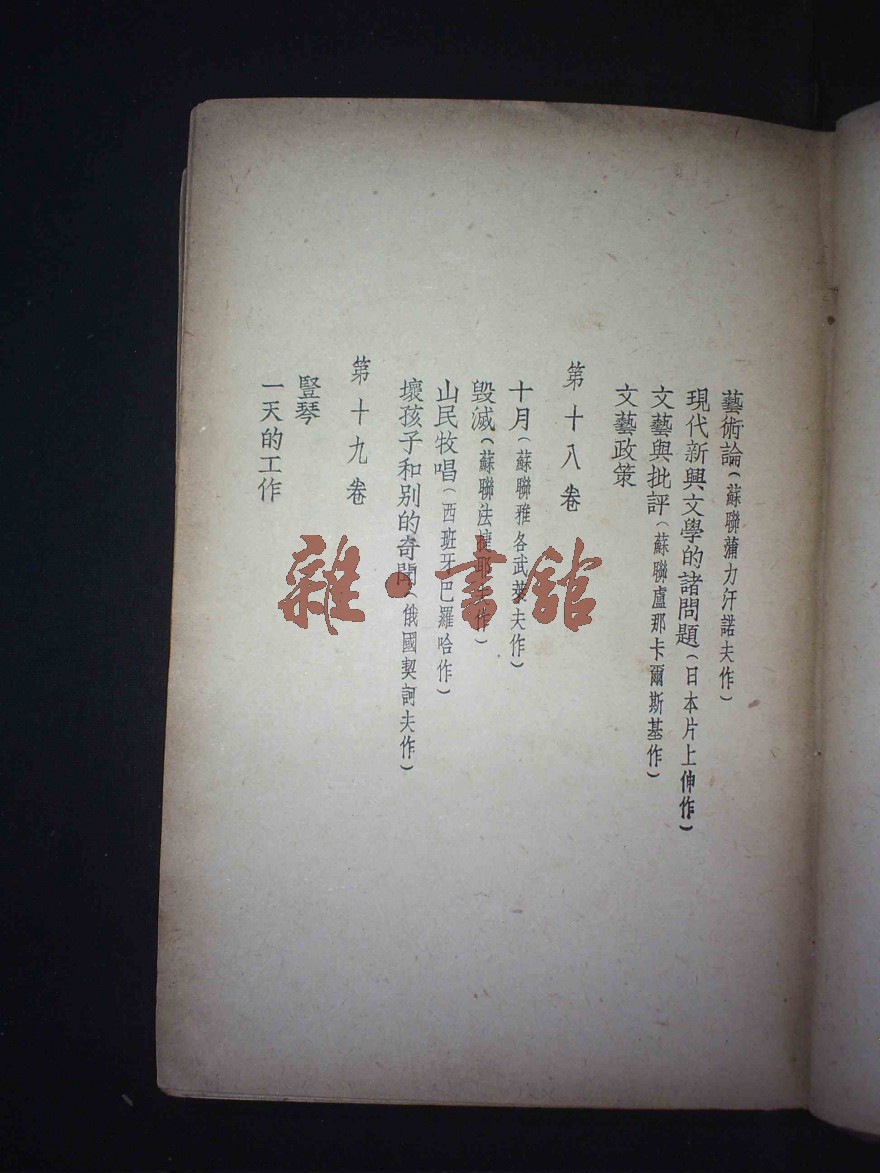 藝術論（蘇聯蒲力汗諾夫作）
現代新興文學的諸問題（日本片上伸作）
文藝與批評（蘇聯盧那卡爾斯基作）
文藝政策
第十八卷
十月（蘇聯雅各武萊夫作）
毀滅（蘇聯法捷耶夫作）
山民牧唱（西班牙巴羅哈作）
壞孩子和別的奇聞（俄國契訶夫作）
第十九卷
豎琴
一天的工作
雜·書館